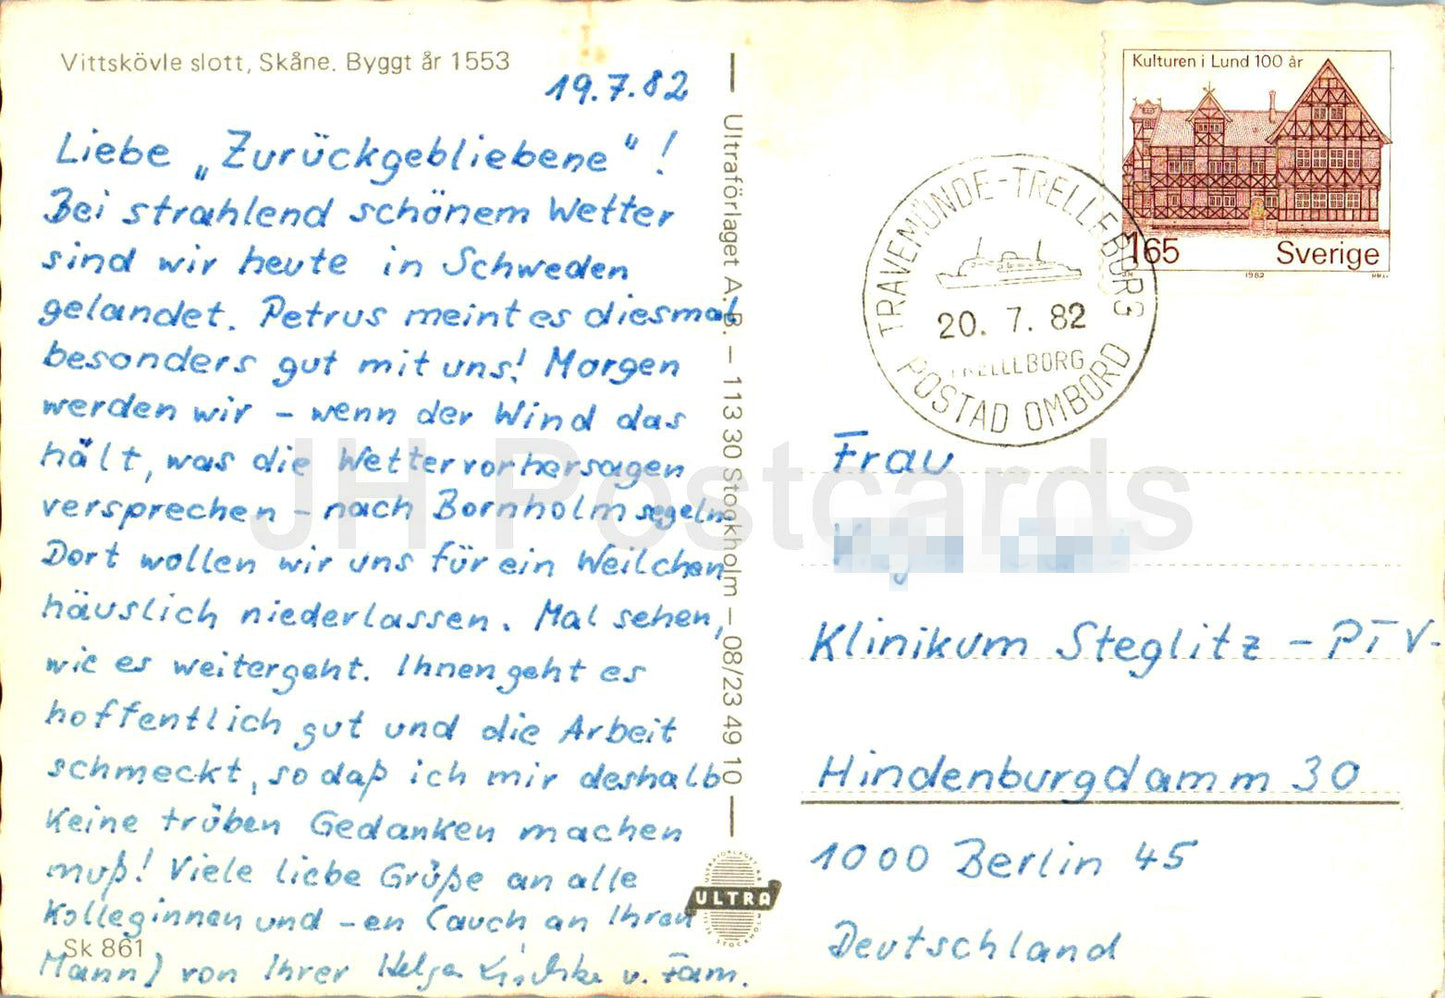 Vittskövle slott, Skåne. Byggt år 1553
19.7.82
Liebe „Zurückgebliebene"!
Bei strahlend schönem Wetter
sind wir heute in Schweden
gelandet. Petrus meint es diesmal
besonders gut mit uns! Morgen
werden wir – wenn der Wind das
hält, was die Wettervorhersagen
versprechen – nach Bornholm segeln.
Dort wollen wir uns für ein Weilchen
häuslich niederlassen. Mal sehen,
wie es weitergeht. Ihnen geht es
hoffentlich gut und die Arbeit
schmeckt, so daß ich mir deshalb
keine trüben Gedanken machen
muß! Viele liebe Grüße an alle
Kolleginnen und -en (auch an Ihren
Mann) von Ihrer Helga u. Fam.
Sk 861
Ultraförlaget A.B. – 113 30 Stockholm – 08/23 49 10
ULTRA
Kulturen i Lund 100 år
165 Sverige
1982
TRAVEMÜNDE-TRELLEBORG
20. 7. 82
TRELLEBORG
POSTAD OMBORD
Frau
Klinikum Steglitz – PTV-
Hindenburgdamm 30
1000 Berlin 45
Deutschland
JH Postcards